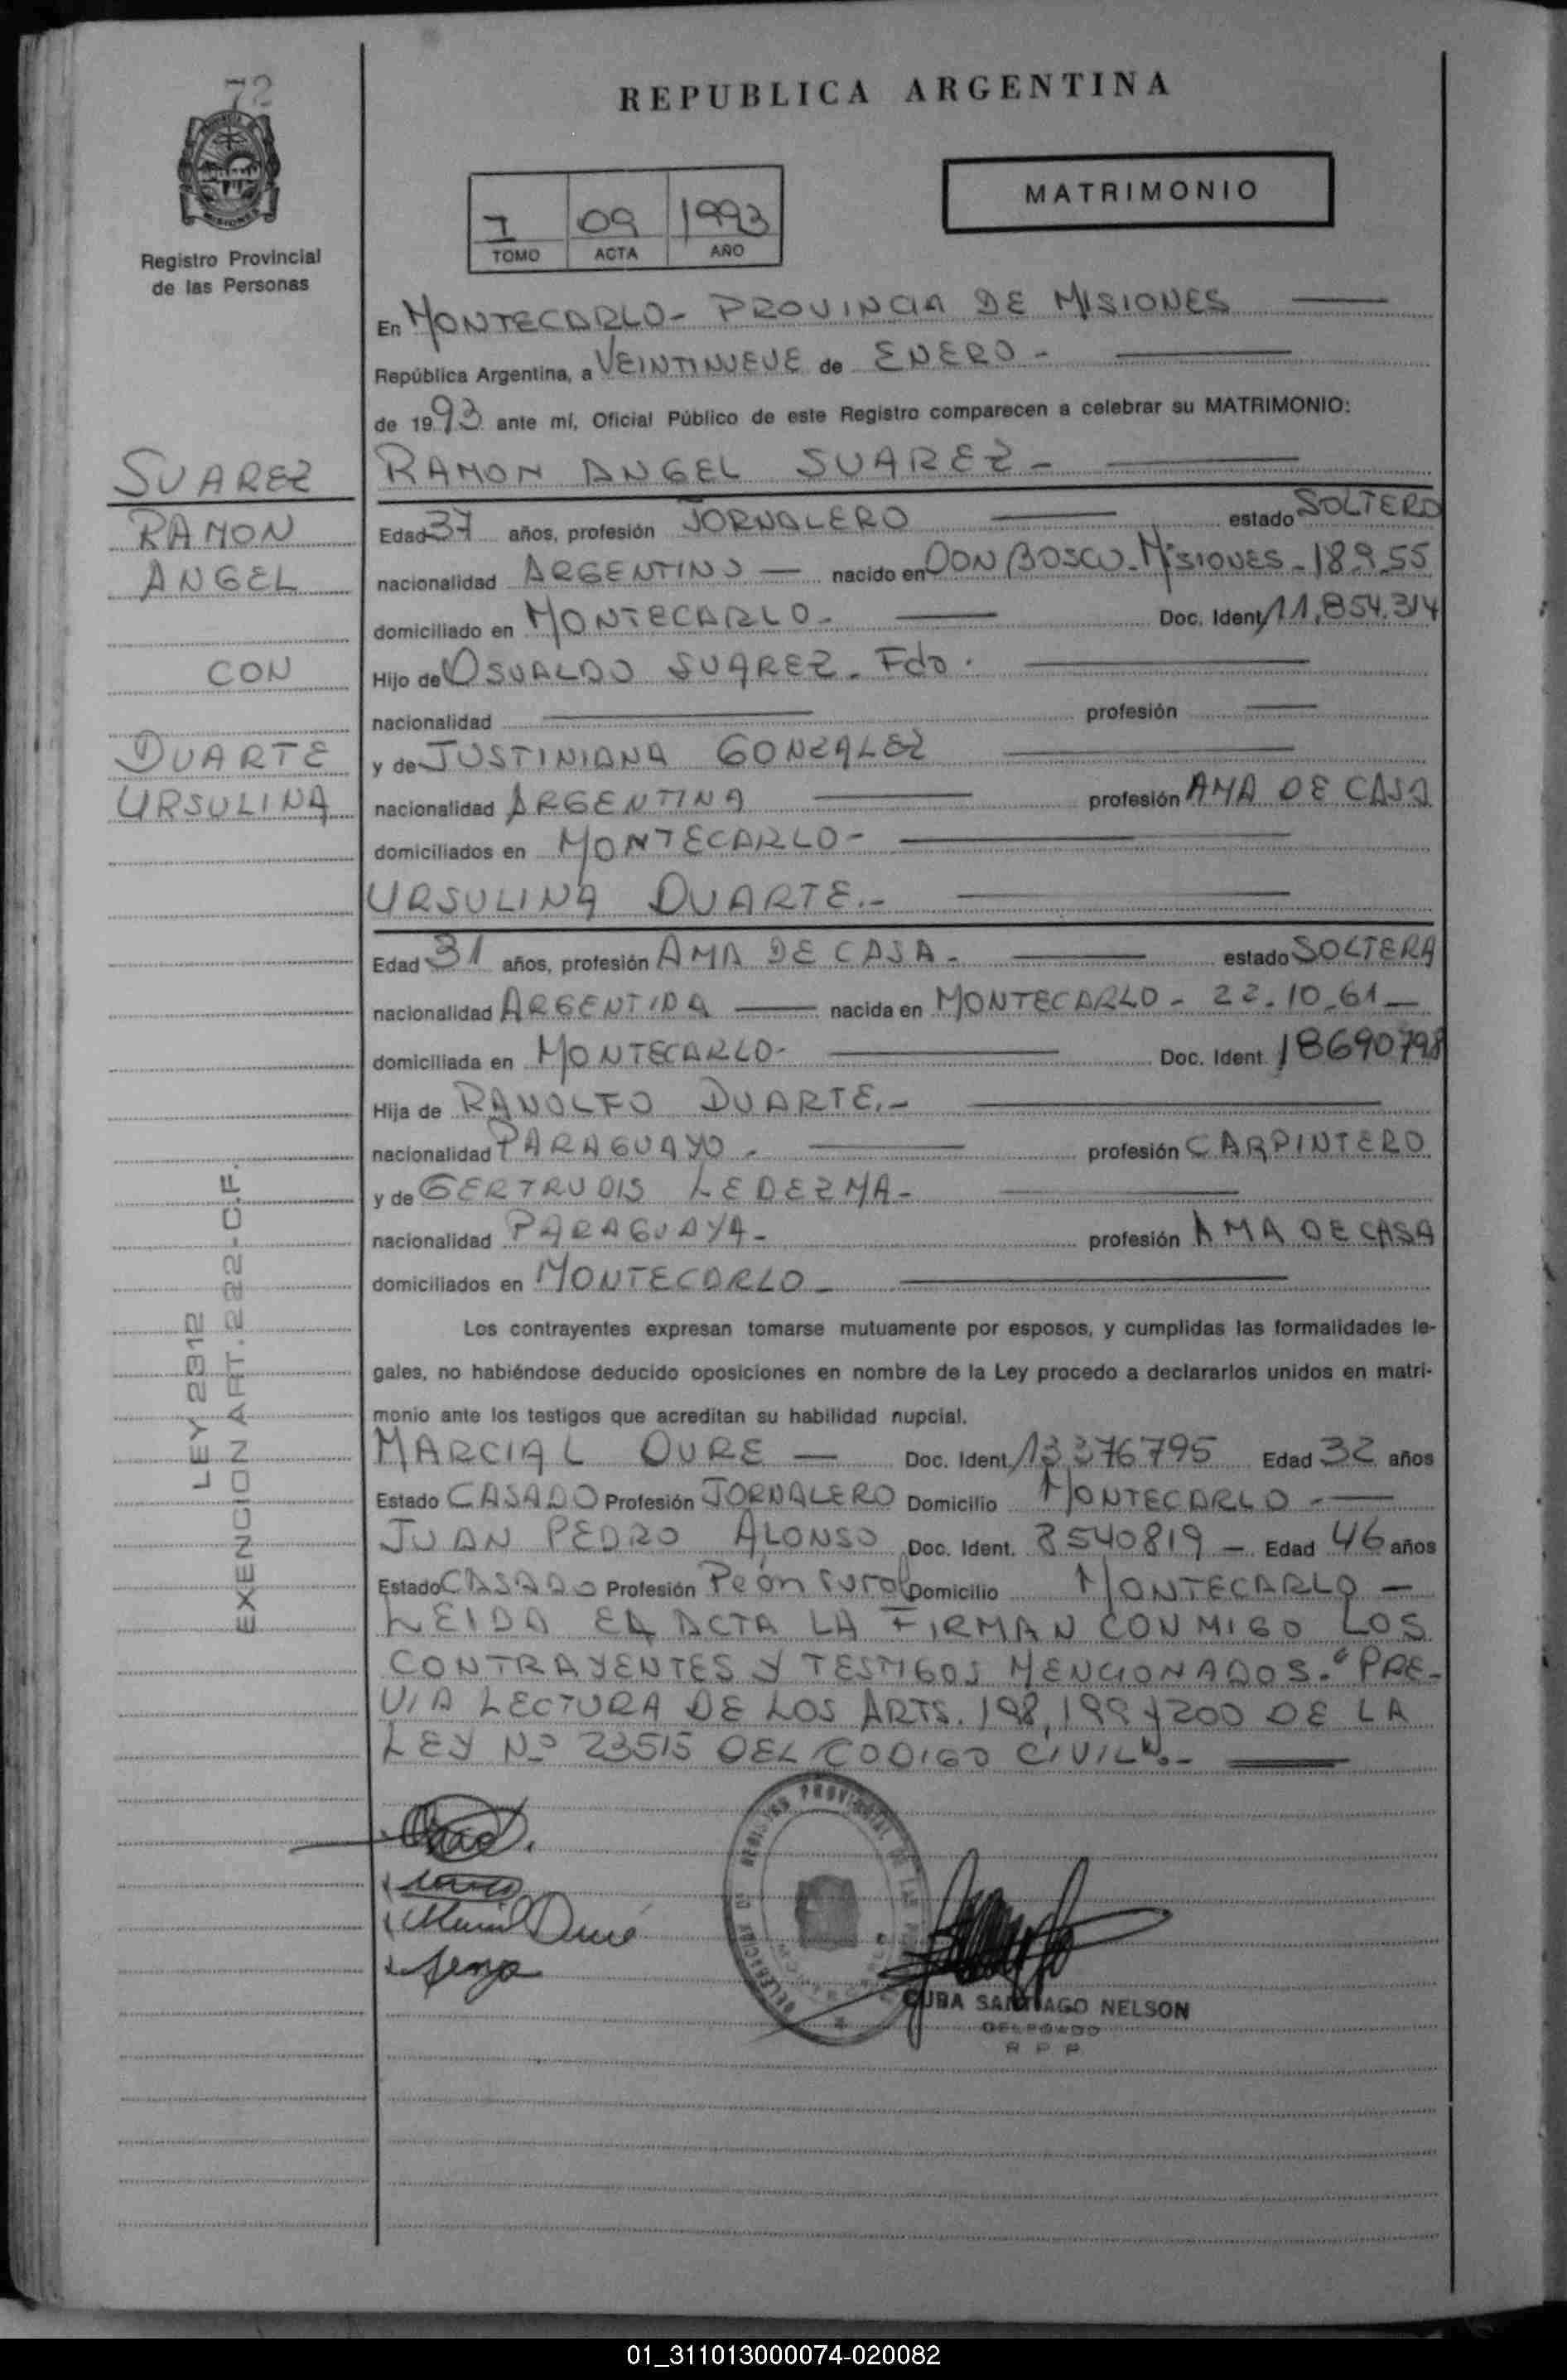 REPUBLICA ARGENTINA
MATRIMONIO
09 1993
TOMO ACTA AÑO
Registro Provincial
de las Personas
En MONTECARLO - PROVINCIA DE MISIONES
República Argentina, a VEINTINUEVE de ENERO -
de 1993 ante mí, Oficial Público de este Registro comparecen a celebrar su MATRIMONIO:
SUAREZ
RAMON
ANGEL
CON
DUARTE
URSULINA
RAMON ANGEL SUAREZ -
Edad 37 años, profesión JORNALERO estado SOLTERO
nacionalidad ARGENTINO — nacido en DON BOSCO - MISIONES - 18.9.55
domiciliado en MONTECARLO - Doc. Ident 11.854.314
Hijo de OSVALDO SUAREZ - Fdo.
nacionalidad — profesión —
y de JUSTINIANA GONZALEZ
nacionalidad ARGENTINA profesión AMA DE CASA
domiciliados en MONTECARLO -
URSULINA DUARTE.-
Edad 31 años, profesión AMA DE CASA - estado SOLTERA
nacionalidad ARGENTINA — nacida en MONTECARLO - 22-10-61 —
domiciliada en MONTECARLO - Doc. Ident. 18690798
Hija de RANOLFO DUARTE.-
nacionalidad PARAGUAYO - profesión CARPINTERO
y de GERTRUDIS LEDEZMA -
nacionalidad PARAGUAYA - profesión AMA DE CASA
domiciliados en MONTECARLO -
Los contrayentes expresan tomarse mutuamente por esposos, y cumplidas las formalidades le-
gales, no habiéndose deducido oposiciones en nombre de la Ley procedo a declararlos unidos en matri-
monio ante los testigos que acreditan su habilidad nupcial.
MARCIAL DURE — Doc. Ident. 13.376795 Edad 32 años
Estado CASADO Profesión JORNALERO Domicilio MONTECARLO -
JUAN PEDRO ALONSO Doc. Ident. 8540819 — Edad 46 años
Estado CASADO Profesión Peón rural Domicilio MONTECARLO —
LEIDA EL ACTA LA FIRMAN CONMIGO LOS
CONTRAYENTES Y TESTIGOS MENCIONADOS.- "PRE-
VIA LECTURA DE LOS ARTS. 198, 199 y 200 DE LA
LEY Nº 23515 DEL CODIGO CIVIL".-
LEY 2312
EXENCION ART. 222 - C.F.
REGISTRO PROVINCIAL DE LAS
Marcial Dure
CUBA SANTIAGO NELSON
DELEGADO
R P P
01_311013000074-020082